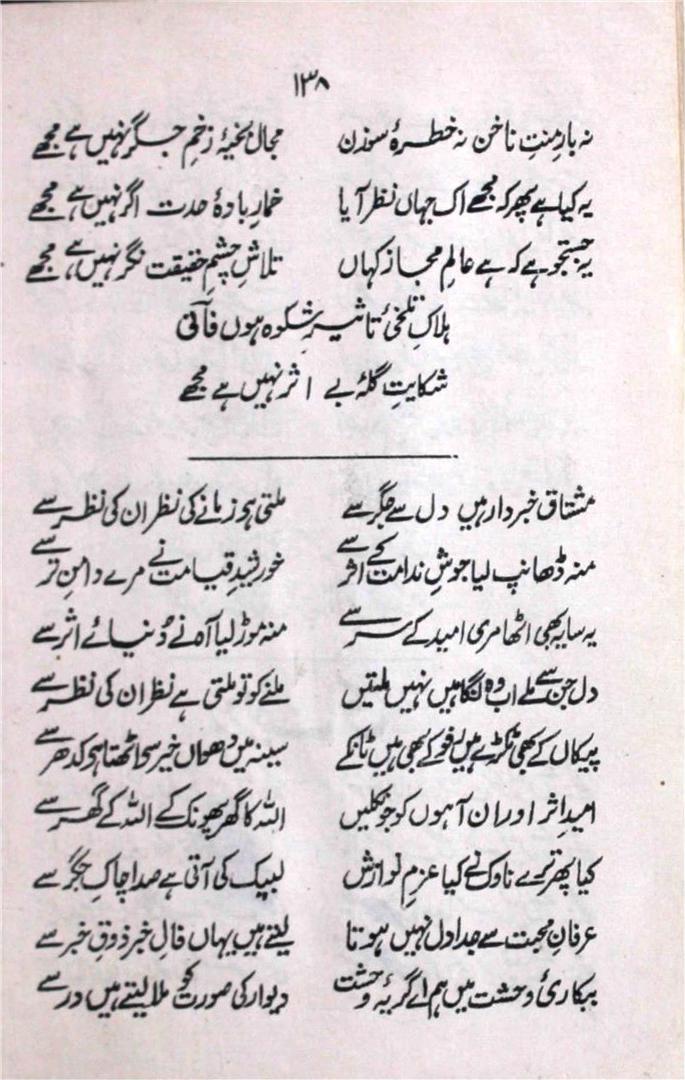 ۱۳۸
نہ بارِ منتِ ناخن نہ خطرۂ سوزن مجال بخیۂ زخمِ جگر نہیں ہے مجھے
یہ کیا ہے پھر کہ مجھے اک جہاں نظر آیا خمارِ بادۂ حدت اگر نہیں ہے مجھے
یہ جستجو ہے کہ ہے عالمِ مجاز کہاں تلاشِ چشمِ حقیقت نگر نہیں ہے مجھے
ہلاکِ تلخیٔ تاثیرِ شکوہ ہوں فآنی
شکایتِ گلۂ بے اثر نہیں ہے مجھے
مشتاق خبردار ہیں دل سے جگر سے ملتی ہو زمانے کی نظر ان کی نظر سے
منہ ڈھانپ لیا جوشِ ندامت کے اثر سے خورشیدِ قیامت نے مرے دامنِ تر سے
یہ سایہ بھی اٹھا مری امید کے سر سے منہ موڑ لیا آہ نے دُنیائے اثر سے
دل جن سے ملے اب وہ نگاہیں نہیں ملتیں ملنے کو تو ملتی ہے نظر ان کی نظر سے
پیکاں کے بھی ٹکڑے ہیں لہو کے بھی ہیں ٹانکے سینہ میں دھواں خیر سے اٹھتا ہو کدھر سے
امیدِ اثر اور ان آہوں کو جو نکلیں اللہ کا گھر پھونک کے اللہ کے گھر سے
کیا پھر ترے ناوک نے کیا عزمِ نوازش لبیک کی آتی ہے صدا چاکِ جگر سے
عرفانِ محبت سے جدا دل نہیں ہوتا لیتے ہیں یہاں فالِ خبر ذوقِ خبر سے
بیکاریٔ وحشت میں ہم اے گریۂ وحشت دیوار کی صورت کو ملا لیتے ہیں در سے